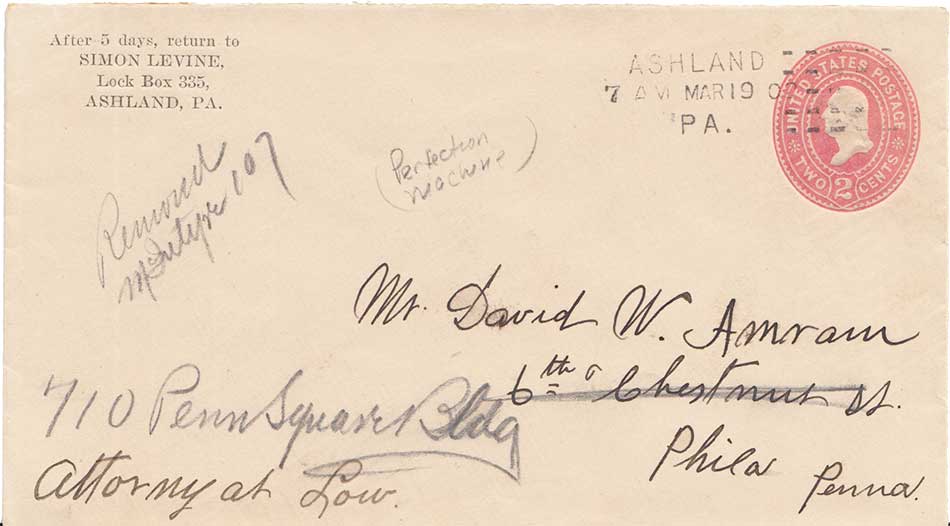 After 5 days, return to
SIMON LEVINE,
Lock Box 335,
ASHLAND, PA.
ASHLAND
7 AM MAR 19
PA.
UNITED STATES POSTAGE
TWO 2 CENTS
(Perfection
Machine)
Removed
McIntyre 107
Mr. David W. Amram
6th & Chestnut St.
Phila Penna.
710 Penn Square Bldg
Attorny at Low.